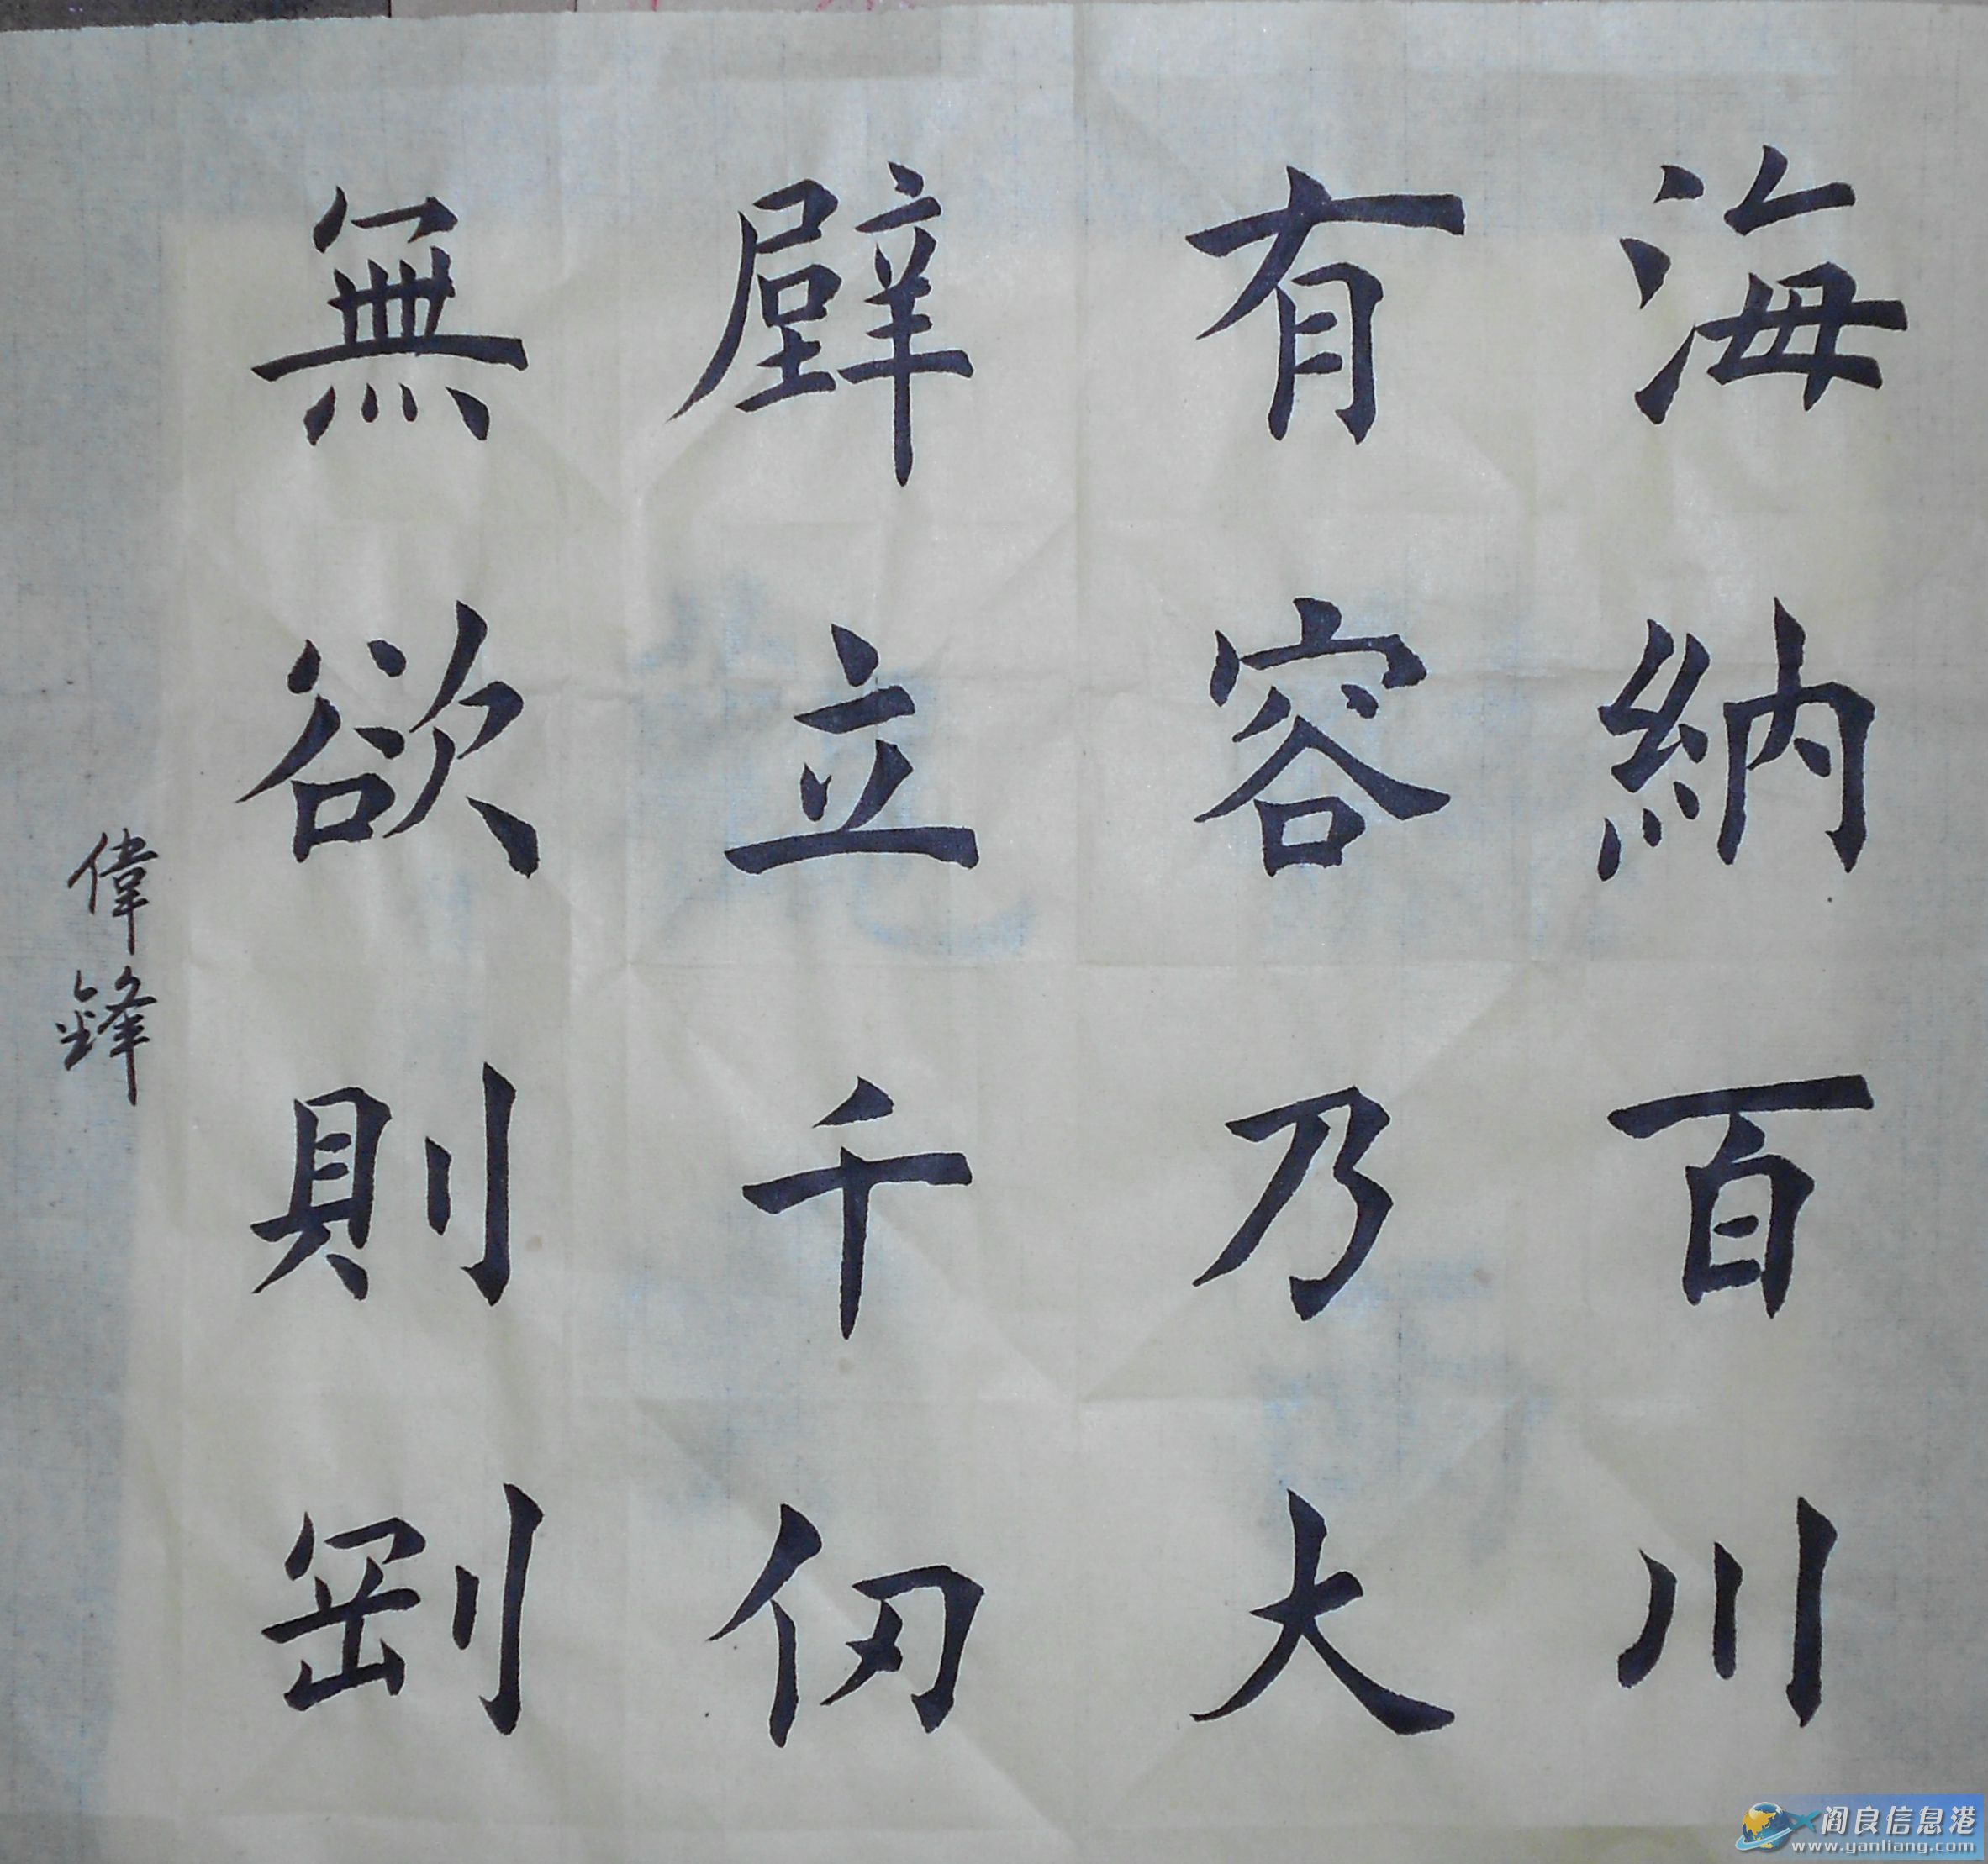 海納百川
有容乃大
壁立千仞
無欲則剛
偉鋒
阎良信息港
www.yanliang.com